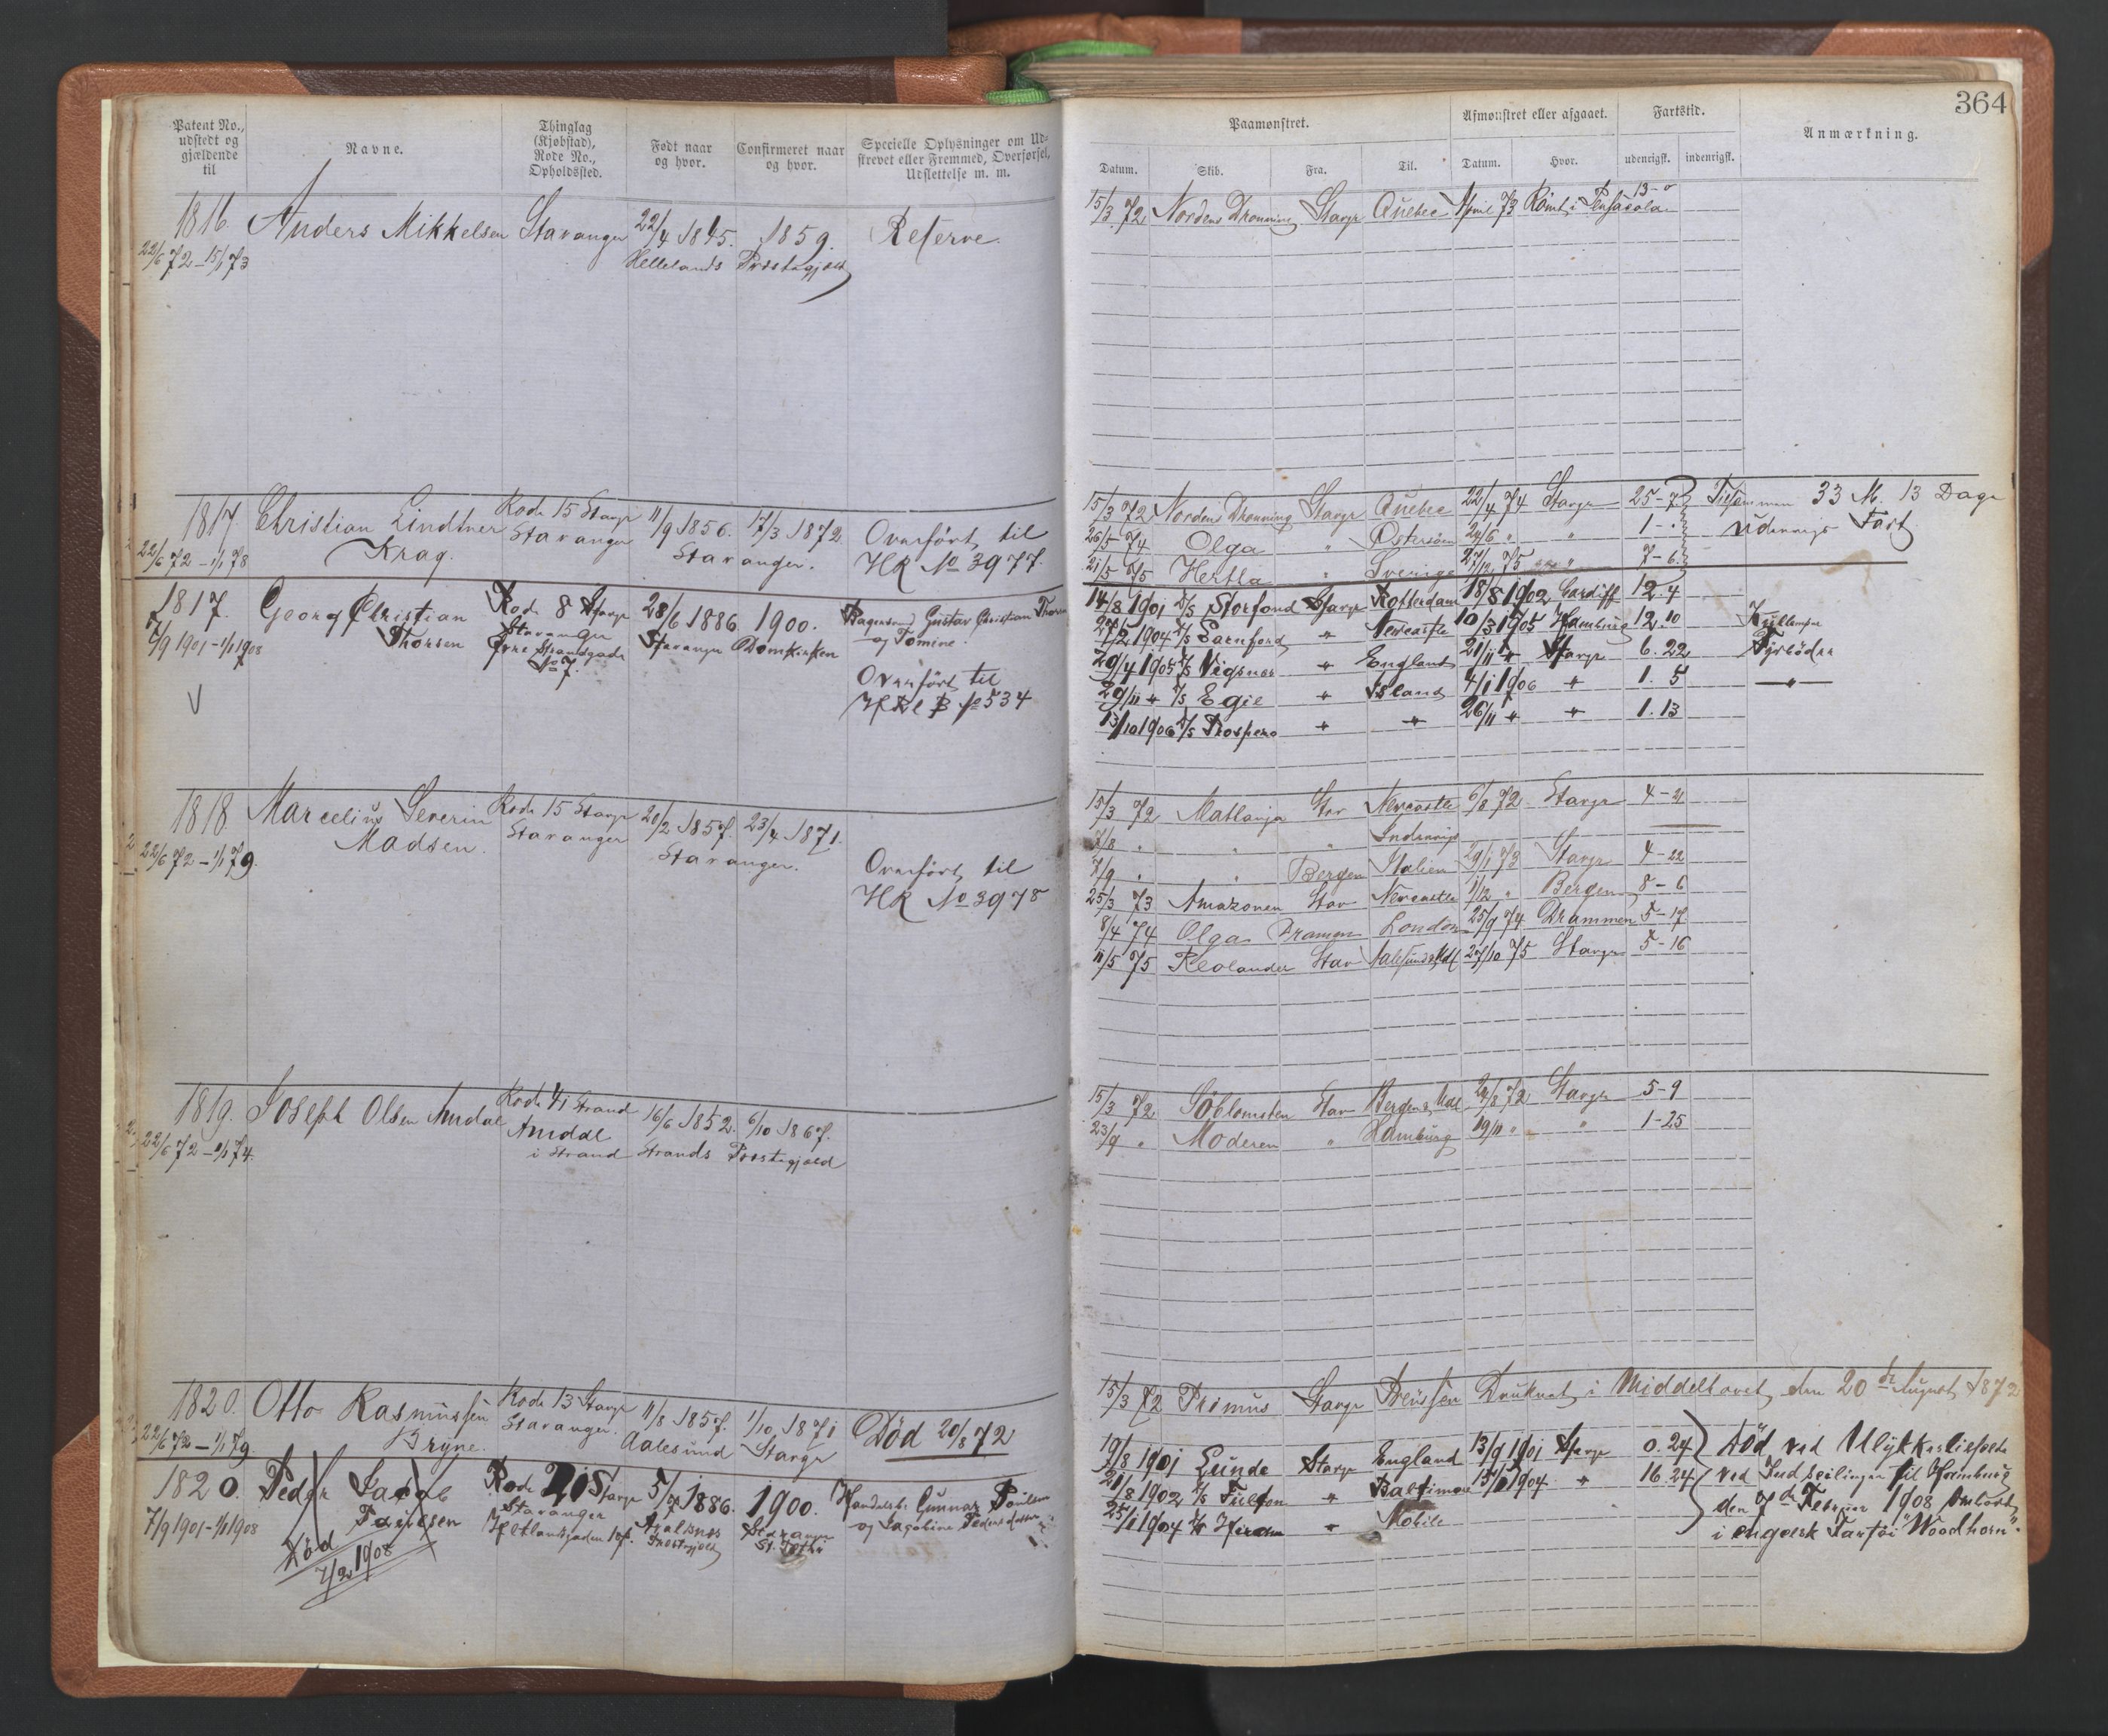 364
Patent No., udstedt og gjældende til
Navne.
Thinglag (Kjøbstad), Rode No., Opholdssted.
Født naar og hvor.
Confirmeret naar og hvor.
Specielle Oplysninger om Udstrevet eller Fremmed, Overførsel, Udslettelse m. m.
Paamønstret.
Afmønstret eller afgaaet.
Fartstid.
Anmærkning.
Datum. Skib. Fra. Til. Datum. Hvor. udenrigsk. indenrigsk.
1816. Anders Mikkelsen Stavanger 22/4 1845. 1859. Reserve.
22/6 72 - 15/1 73 Hellelands Præstegjeld
15/3 72 Nordens Dronning Stavgr Quebec April 73 Rømt i Pensacola. 13-0
1817. Christian Lindtner Rode 15 Stavgr 11/9 1856. 17/3 1872 Overført til
22/6 72 - 1/1 78 Krag. Stavanger Stavanger. HR No 3977.
15/3 72 Nordens Dronning Stavgr Quebec 22/4 74 Stavgr 25-7 Tilsammen 33 M. 13 Dage
26/5 74 Olga " Østersøen 24/6 " " 1 - " udenrigs Fart
21/5 75 Hertha " Sverige 27/12 75 " 7-6
1817. Georg Christian Rode 8 Stavgr 28/6 1886 1900. Bagersvend Gustav Christian Thorsen
7/9 1901 - 1/1 1908 Thorsen Stavanger Stavanger Domkirken og Tomine.
Øvre Strandgade
No 7.
Overført til
HRl B No 534
14/8 1901 D/S Storfond Stavgr Rotterdam 18/8 1902 Cardiff 12.4
27/2 1904 D/S Earnford " Newcastle 10/3 1905 Hamburg 12.10 Kullemper
29/4 1905 D/S Vigsnes " England 21/11 " Stavgr 6.22 Fyrbøder
29/11 " D/S Egil " Island 4/1 1906 " 1. 5 — " —
13/10 1906 D/S Prospero " " 26/11 " " 1.13
1818. Marcelius Severin Rode 15 Stavgr 20/2 1857. 23/4 1871.
22/6 72 - 1/1 79. Madsen. Stavanger Stavanger.
Overført til
HR No 3978
15/3 72 Matlanja Stav Newcastle 6/8 72 Stavgr 4-21
7/8 " " " Indenrigs
7/9 " " Bergen Italien 29/1 73 Stavgr 4-22
25/3 73 Amazonen Stav Newcastle 1/12 " Bergen 8-6
8/4 74 Olga Dramen London 25/9 74 Drammen 5-17
11/5 75 Reolander Stav Aalesund 27/10 75 Stavgr 5-16
1819. Joseph Olsen Amdal Rode 41 Strand 16/6 1852. 6/10 1867.
22/6 72 - 1/1 74. Amdal
i Strand Strands Præstegjeld
15/3 72 Søblomsten Stav Bergen & Udl 24/8 72 Stavgr 5-9
23/9 " Moderen " Hamburg 19/11 " " 1-25
1820. Otto Rasmussen Rode 13 Stavgr 11/8 1857. 1/10 1871 Død 20/8 72
22/6 72 - 1/1 79. Bryne. Stavanger. Aalesund Stavgr
15/3 72 Primus Stavgr Preussen Druknet i Middelhavet den 20de August 1872
1820. Peder Jacob Rode 21 Stavgr 5/7 1886. 1900. Gunnar
7/9 1901 - 1/1 1908 Stavanger Stavanger og Jacobine
Hetlandsgaden Præstegjeld St. Petri
Død
7/2 1908
19/8 1901 Lunde Stavgr England 13/9 1901 Stavgr 0.24 Død ved Ulykkestilfælde
21/8 1902 D/S Fulton " Baltimore 1904. " 16.24 ved Indseilingen til Hamburg
25/1 1904 D/S Hiram " Mobile den 7de Februar 1908 ombord
i engelsk Fartøi "Woodhorn".